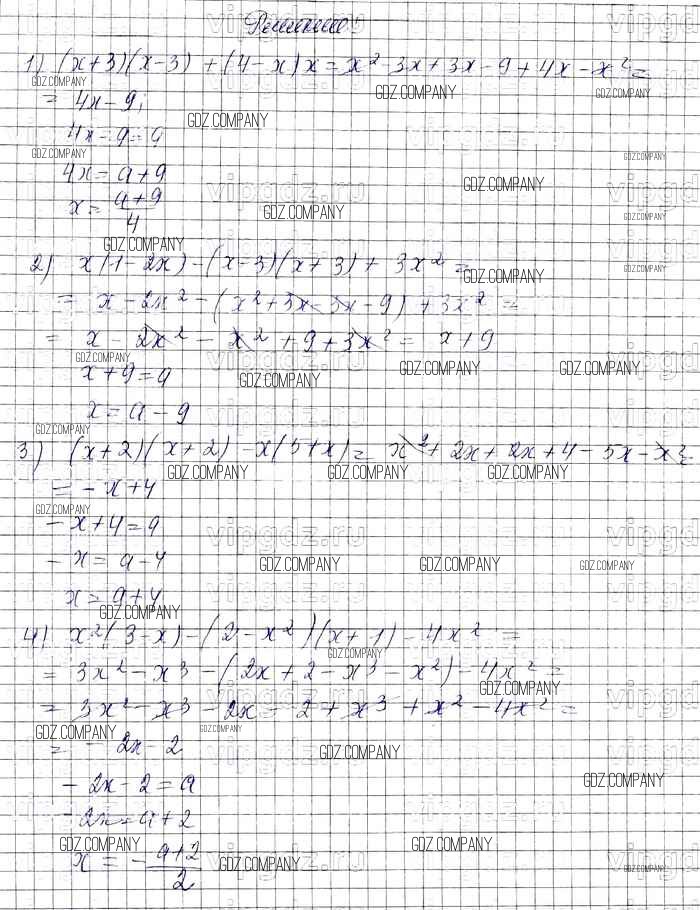 Решение
1) (x+3)(x-3)+(4-x)x = x²-3x+3x-9+4x-x² =
= 4x-9;
4x-9=a
4x=a+9
x=\frac{a+9}{4}
2) x(1-2x)-(x-3)(x+3)+3x² =
= x-2x²-(x²+3x-3x-9)+3x² =
= x-2x²-x²+9+3x² = x+9
x+9=a
x=a-9
3) (x+2)(x+2)-x(5+x) = x²+2x+2x+4-5x-x² =
= -x+4
-x+4=a
-x=a-4
x=a+4
4) x²(3-x)-(2-x²)(x+1)-4x² =
= 3x²-x³-(2x+2-x³-x²)-4x² =
= 3x²-x³-2x-2+x³+x²-4x² =
= -2x-2
-2x-2=a
-2x=a+2
x=-\frac{a+2}{2}